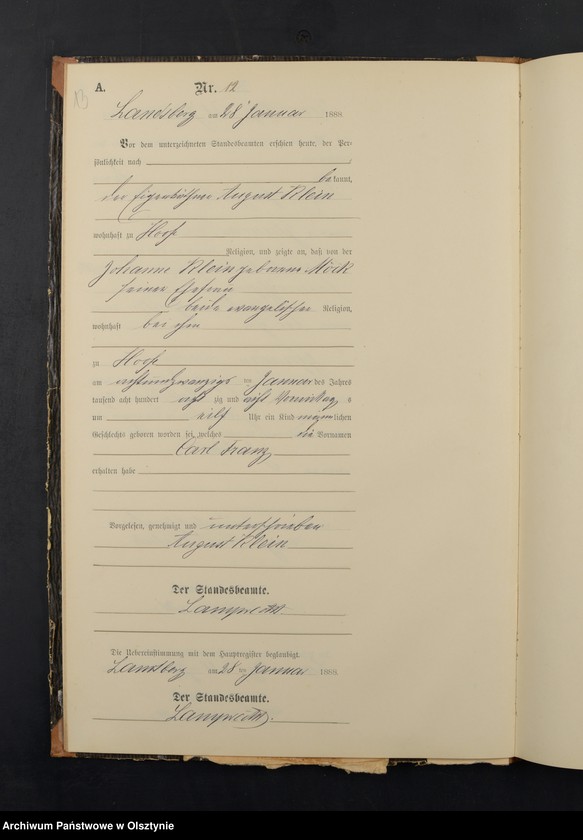 A. Nr. 12
13
Landsberg am 28ten Januar 1888.
Vor dem unterzeichneten Standesbeamten erschien heute, der Per-
sönlichkeit nach
bekannt,
der Eigenkäthner August Klein
wohnhaft zu
Religion, und zeigte an, daß von der
Johanne Klein geborene Möck
seiner Ehefrau
beide evangelischer Religion,
wohnhaft bei ihm
zu
am achtundzwanzigsten Januar des Jahres
tausend acht hundert acht zig und acht Vormittag s
um eilf Uhr ein Kind männlichen
Geschlechts geboren worden sei, welches die Vornamen
Carl Franz
erhalten habe
Vorgelesen, genehmigt und unterschrieben
August Klein
Der Standesbeamte.
Die Uebereinstimmung mit dem Hauptregister beglaubigt.
Landsberg am 28ten Januar 1888.
Der Standesbeamte.
Archiwum Państwowe w Olsztynie